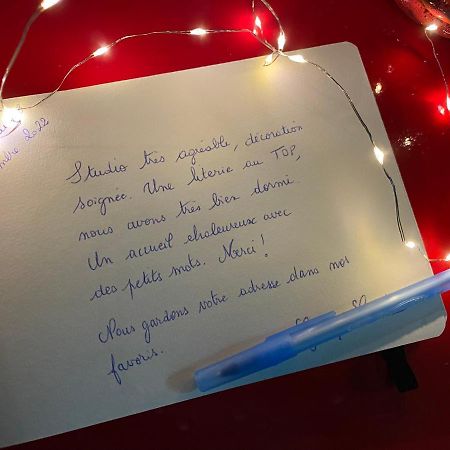 2022
Studio très agréable, décoration
soignée. Une literie au TOP,
nous avons très bien dormi.
Un accueil chaleureux avec
des petits mots. Merci !
Nous gardons votre adresse dans nos
favoris.